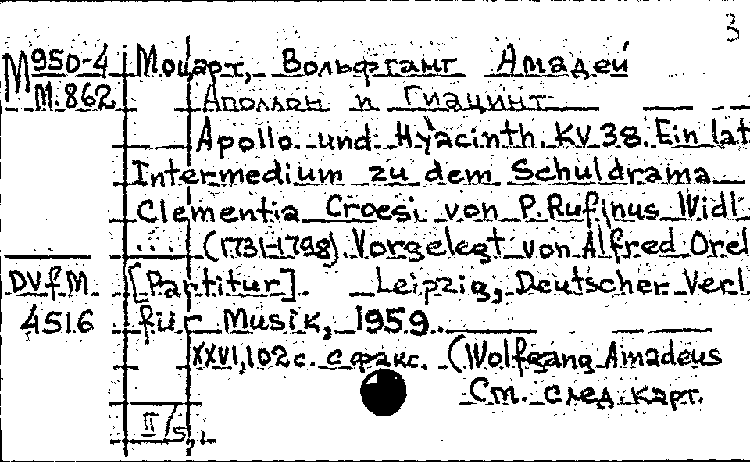 3
М950-4 Моцарт, Вольфганг Амадей
М.862 Аполлон и Гиацинт
Apollo und Hyacinth. KV 38. Ein lat
Intermedium zu dem Schuldrama
Clementia Croesi von P. Rufinus Widl
... (1731-1798). Vorgelegt von Alfred Orel
DVfM. [Partitur]. Leipzig, Deutscher Verl.
4516 für Musik, 1959.
XXVI, 102 с. с факс. (Wolfgang Amadeus
См. след. карт.
II/5,